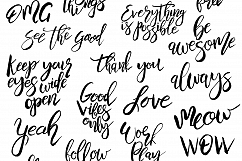 OMG
things
Everything
is possible
free
See the Good
be
awesome
Keep your
eyes wide
open
Thank you
always
Good
vibes
only
Love
meow
Yeah
Work
Play
WOW
follow